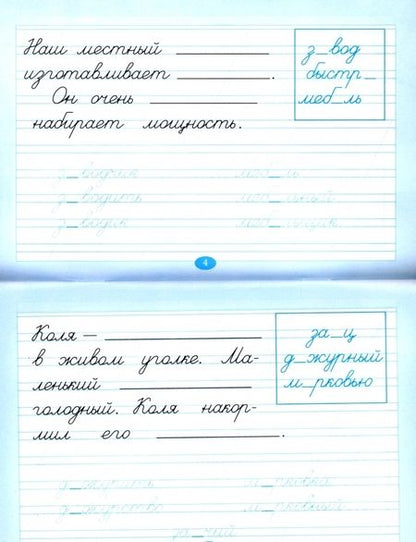 Наш местный __________
изготавливает __________.
Он очень __________
набирает мощность.
з_вод
быстр_
меб_ль
з_водчик меб_ль
з_водить меб_льный
з_водик меб_льщик
4
Коля — __________
в живом уголке. Ма-
ленький __________
голодный. Коля накор-
мил его __________.
за_ц
д_журный
м_рковью
д_журить м_рковка
д_журство м_рковный
за_чий